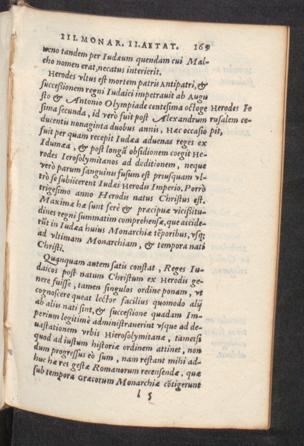 III. MONAR. II. AETAT. 169
neno tandem per Iudæum quendam cui Mal-
cho nomen erat, necatus interierit.
Herodes vltus est mortem patris Antipatri, &
successionem regni Iudaici impetrauit ab Augu
sto & Antonio Olympiade centesima octoge
sima secunda, id verò fuit post Alexandrum
ducenti nonaginta duobus annis, Hæc occasio
fuit per quam recepit Iudæa aduenas reges ex
Idumæa, & post longã obsidionem coegit He-
rodes Ierosolymitanos ad deditionem, neque
verò parum sanguinis fusum est priusquam vl-
trò se subiicerent Iudæi Herodis Imperio. Porrò
trigesimo anno Herodis natus Christus est.
Maximæ hæ sunt ferè & præcipuæ vicißitu-
dines regni summatim comprehensæ, quæ accide-
rũt in Iudæa huius Monarchiæ tẽporibus, vsq;
ad vltimam Monarchiam, & tempora nati
Christi.
Quãquam autem satis constat, Reges Iu-
daicos post natum Christum ex Herodis ge-
nere fuisse, tamen singulos ordine ponam, vt
cognoscere queat lector facilius quomodo alij
ab alijs nati sint, & successione quadam Im-
perium legitimè administrauerint vsque ad de-
uastationem vrbis Hierosolymitanæ, tametsi
quod ad iustum historiæ ordinem attinet, non
dum progressus eò sum, nam restant mihi ad-
huc hæ res gestæ Romanorum recensendæ, quæ
sub tempora Græcorum Monarchiæ cõtigerunt
l 5
Herodes
rusalem ce-
pit,